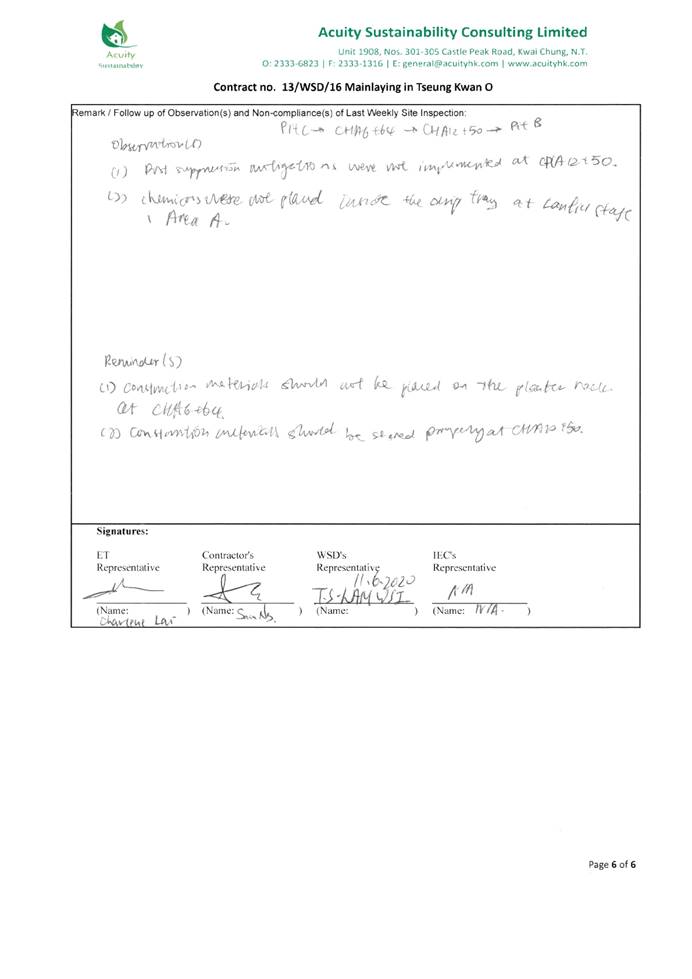 Acuity
Sustainability
Acuity Sustainability Consulting Limited
Unit 1908, Nos. 301-305 Castle Peak Road, Kwai Chung, N.T.
O: 2333-6823 | F: 2333-1316 | E: general@acuityhk.com | www.acuityhk.com
Contract no. 13/WSD/16 Mainlaying in Tseung Kwan O
Remark / Follow up of Observation(s) and Non-compliance(s) of Last Weekly Site Inspection:
Pit C → CHA6+64 → CHA12+50 → Pit B
Observation(s)
(1) Dust suppression mitigations were not implemented at CHA12+50.
(2) chemicals were not placed inside the drip tray at Landfill Stage
1 Area A.
Reminder(s)
(1) Construction materials should not be placed on the planter
at CHA6+64.
(2) Construction materials should be stored properly at CHA12+50.
Signatures:
ET Contractor's WSD's IEC's
Representative Representative Representative Representative
11.6.2020
T.S. LAM WSI N/A
(Name: ) (Name: Sam Ng ) (Name: ) (Name: N/A. )
Charlene Lai
Page 6 of 6